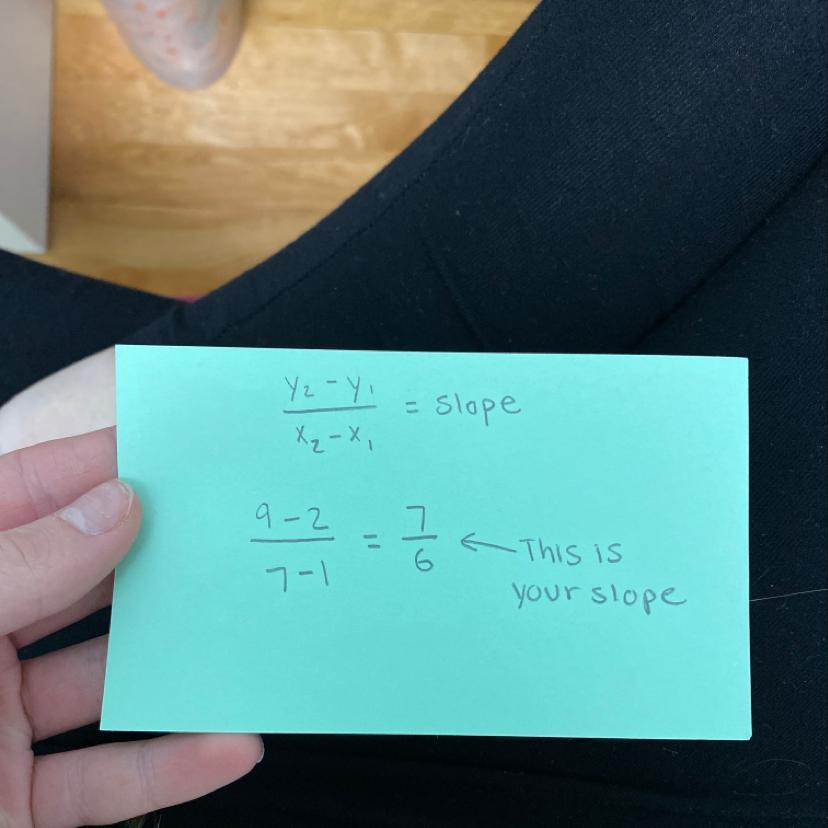 y₂ - y₁
x₂ - x₁
= slope
9 - 2
7 - 1
= 7
6
← This is
your slope